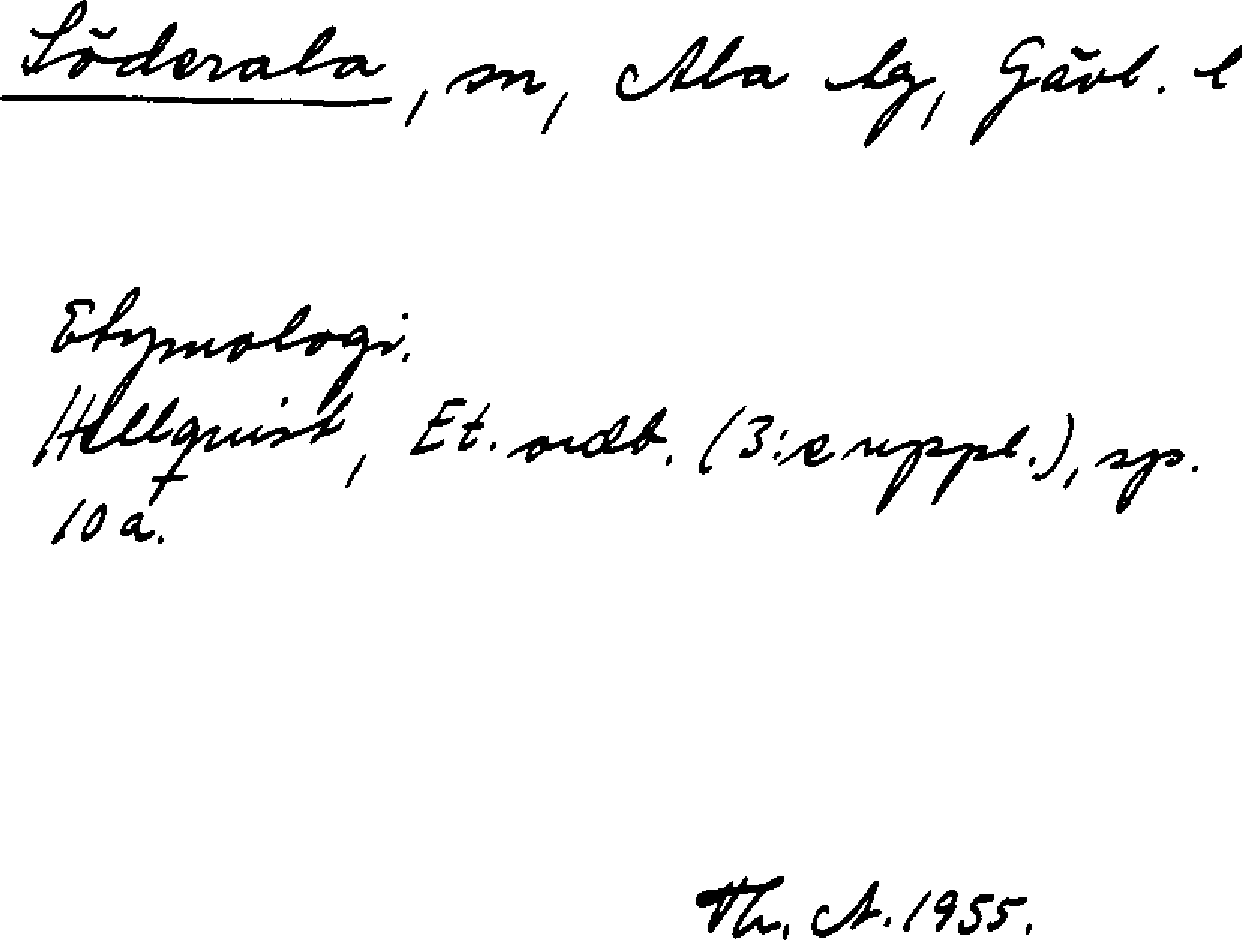 Söderala, sn, Ala tg, Gävl. l
Etymologi.
Hellquist, Et. ordb. (3:e uppl.), sp.
10 a.
Th. A. 1955.